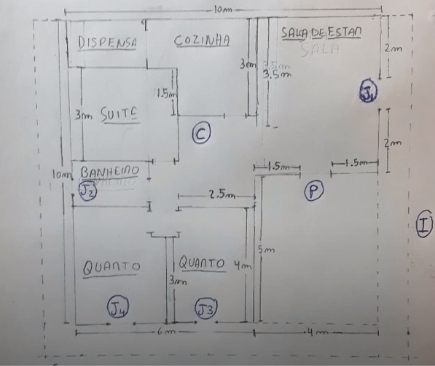 10m
DISPENSA
COZINHA
SALA DE ESTAR
SALA
2m
3m
3.5m
3.5m
J1
1.5m
3m
SUITE
C
2m
10m
BANHEIRO
1.5m
1.5m
J2
2.5m
P
I
5m
QUARTO
QUARTO
4m
3m
J4
J3
6m
4m